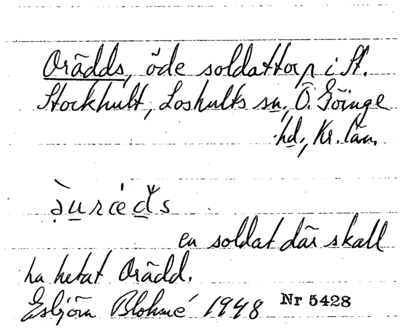 Orädds, öde soldattorp i St.
Stockhult, Loshults sn, Ö. Göinge
hd, Kr. län.
en soldat där skall
ha hetat Orädd.
Esbjörn Blohmé 1948 Nr 5428